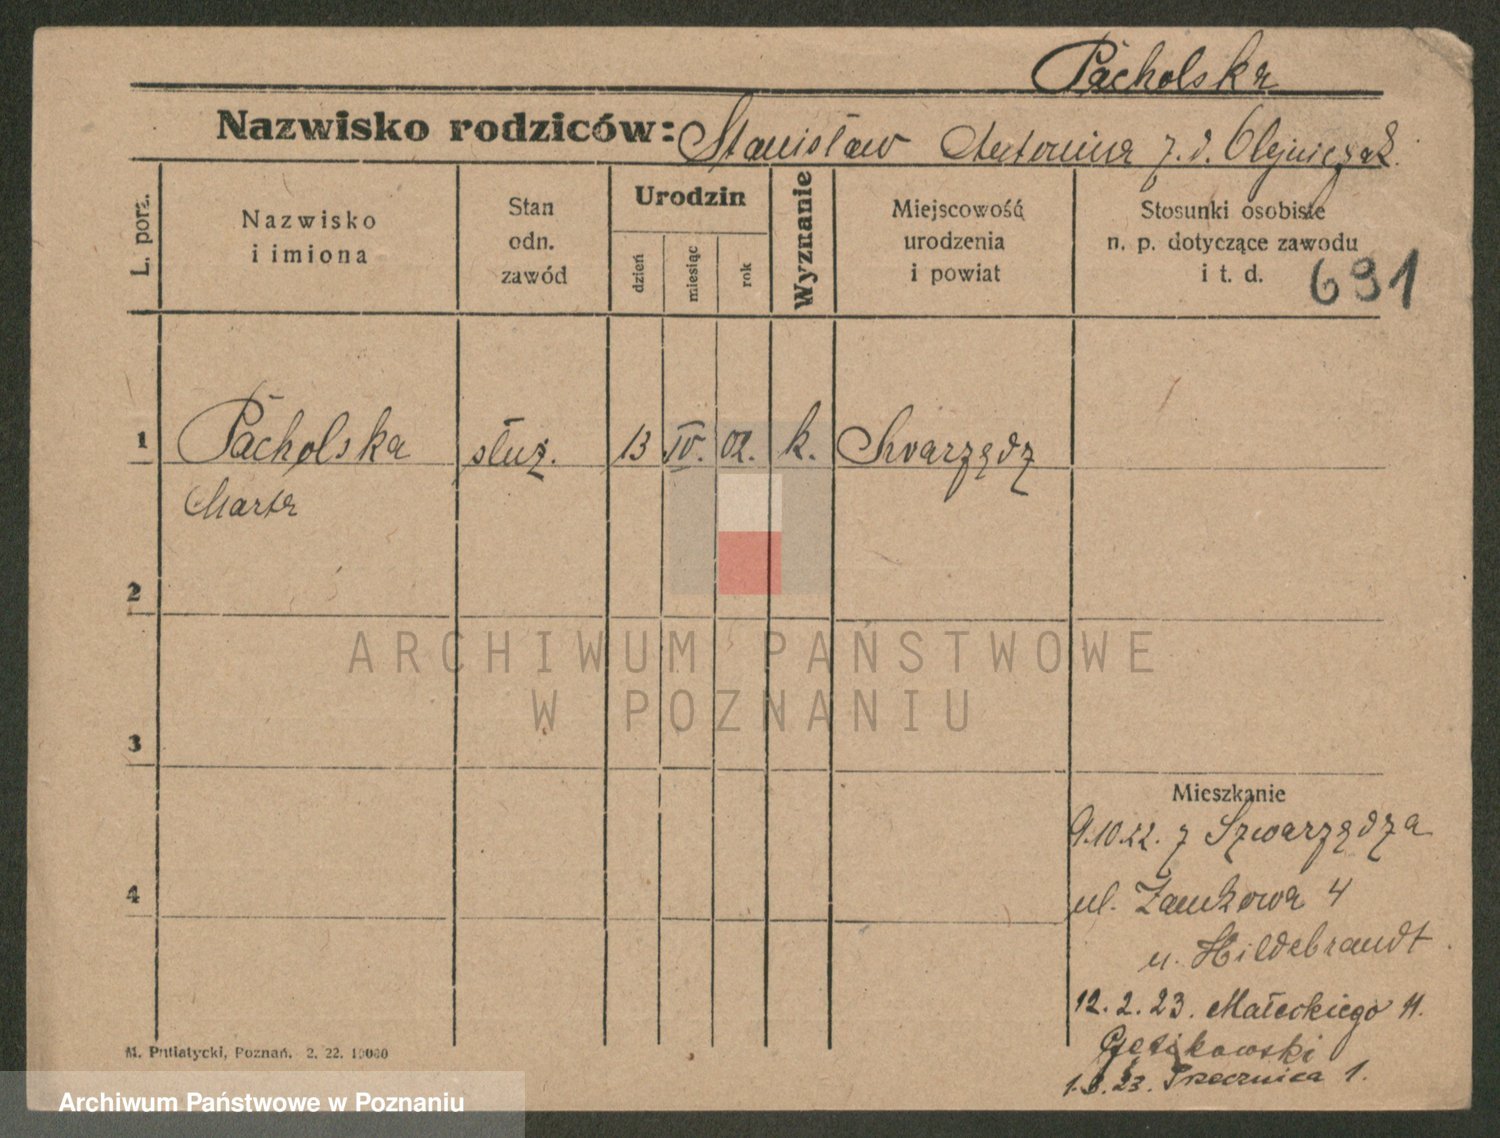 Pacholska
Nazwisko rodziców: Stanisław Antonina z. d. Olejniczak.
L. porz.
Nazwisko
i imiona
Stan
odn.
zawód
Urodzin
dzień
miesiąc
rok
Wyznanie
Miejscowość
urodzenia
i powiat
Stosunki osobiste
n. p. dotyczące zawodu
i t. d.
691
1 Pacholska służ. 13 IV. 02. k. Swarzędz
Marta
2
ARCHIWUM PAŃSTWOWE
W POZNANIU
3
Mieszkanie
9.10.22. z Szwarzędza
4
ul. Zamkowa 4
u. Hildebrandt.
12. 2. 23. Małeckiego 11.
1. 3. 23. Przecznica 1.
M. Putiatycki, Poznań. 2. 22. 10000
Archiwum Państwowe w Poznaniu